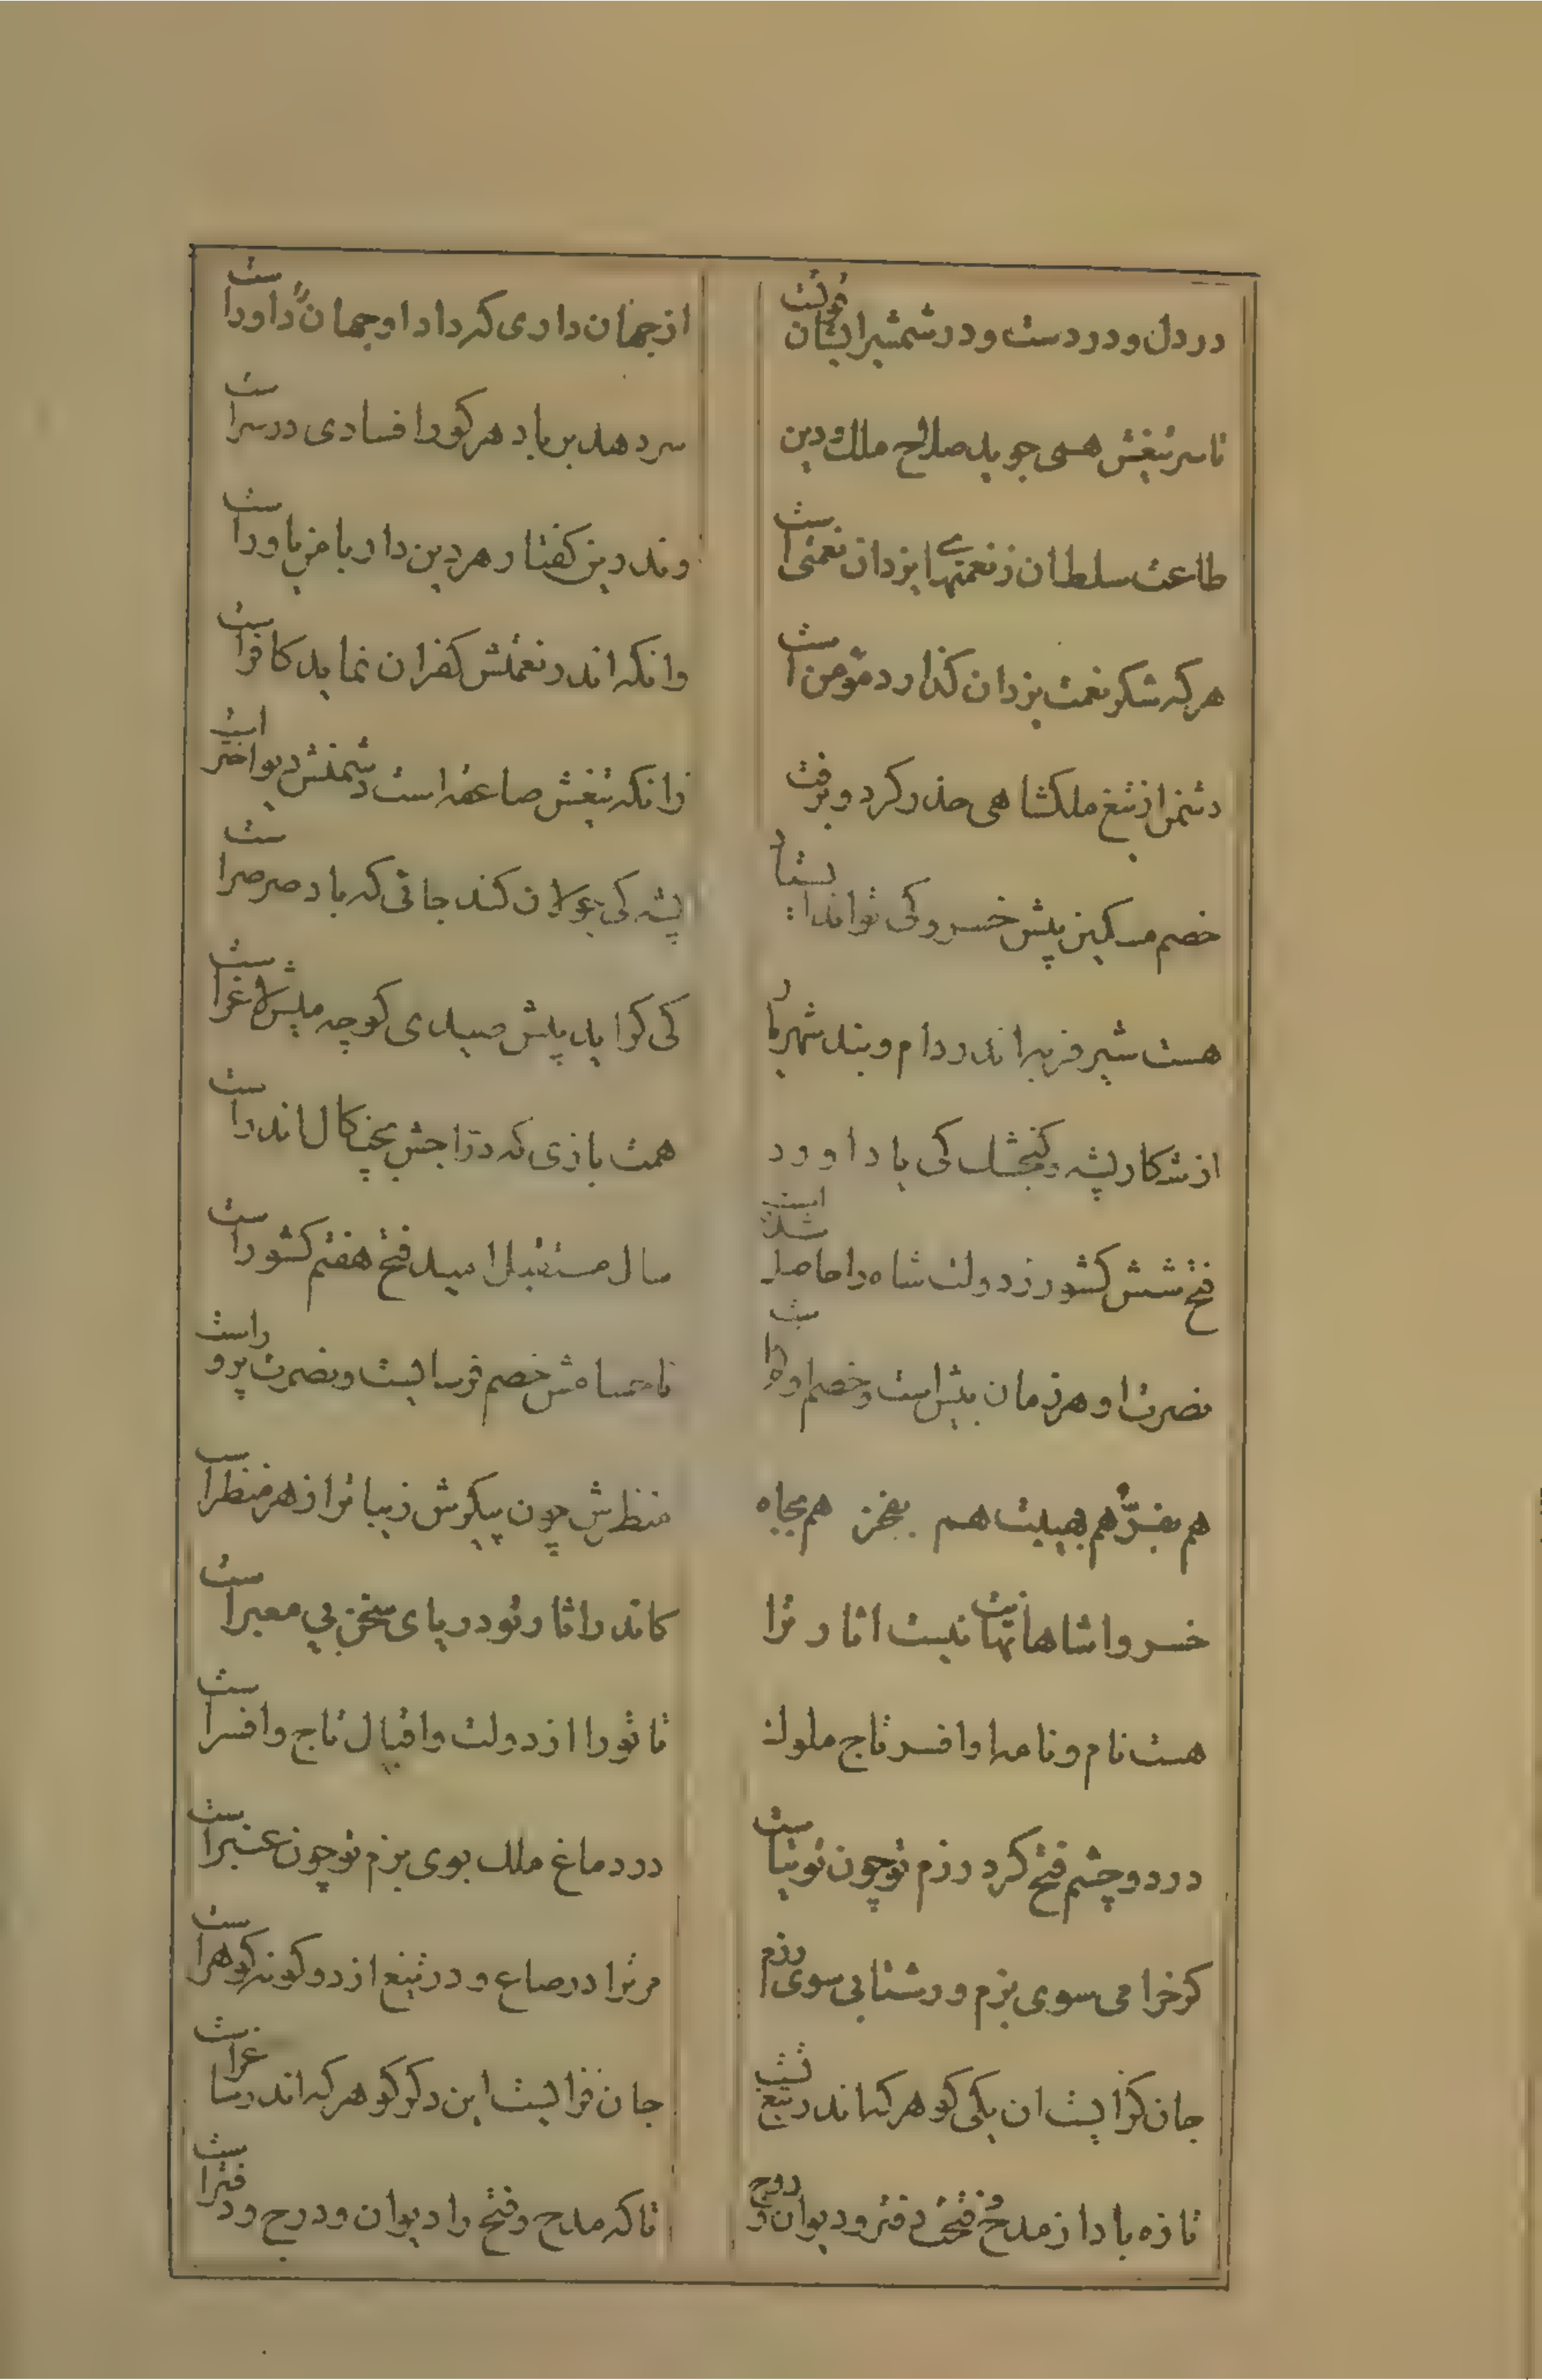 در دل و در دست و در شمشیر ایشان قوتست
از جهان داری که داد او جهان را داور است
تا سر تیغش همی جوید صلاح ملک و دین
سر دهد بر باد هر کو را فسادی در سر است
طاعت سلطان ز نعمتهای ایزدان نعمتی است
وندرین کفتار هر دین دار با من یاور است
هر که شکر نعمت یزدان کذارد مؤمن است
وانکه اندر نعمتش کفران نماید کافر است
دشمن از تیغ ملکشاهی حذر کرد و برفت
زانکه تیغش صاعقه است و دشمنش دیو اختر است
خصم مسکین پیش خسرو کی تواند ایستاد
پشه کی جولان کند جائی که باد صرصر است
هست شیر فربه اندر دام و بند شهریار
کی کراید پیش صیدی کو چه میش لاغر است
از شکار پشه و کنجشک کی یاد اورد
همت بازی که دراجش بچنکال اندر است
فتح شش کشور ز دولت شاه را حاصل شده است
سال مستقبل امید فتح هفتم کشور است
نصرت او هر زمان بیش است و خصم او
تا حسامش خصم فرسایست و نصرت پرور است
هم بفر و هم بهیبت هم بفخر هم بجاه
منظرش چون پیکرش زیباتر از هر منظر است
خسروا شاها نهایت نیست اثار ترا
کاندر اثار تو دریای سخن بی معبر است
هست نام و نامه او افسر تاج ملوک
تا تو را از دولت و اقبال تاج و افسر است
در دو چشم فتح کرد رزم تو چون توتیاست
در دماغ ملک بوی بزم تو چون عنبر است
کر خرامی سوی بزم و ر شتابی سوی رزم
مر ترا در صاع و در تیغ از دو کونه کوهر است
جان کزایست ان یکی کوهر که اندر تیغ تست
جان فزایست این دکر کوهر که اندر ساغر است
تازه بادا از مدح و فتحت دفتر و دیوان و درج
تا که مدح و فتح را دیوان و درج و دفتر است